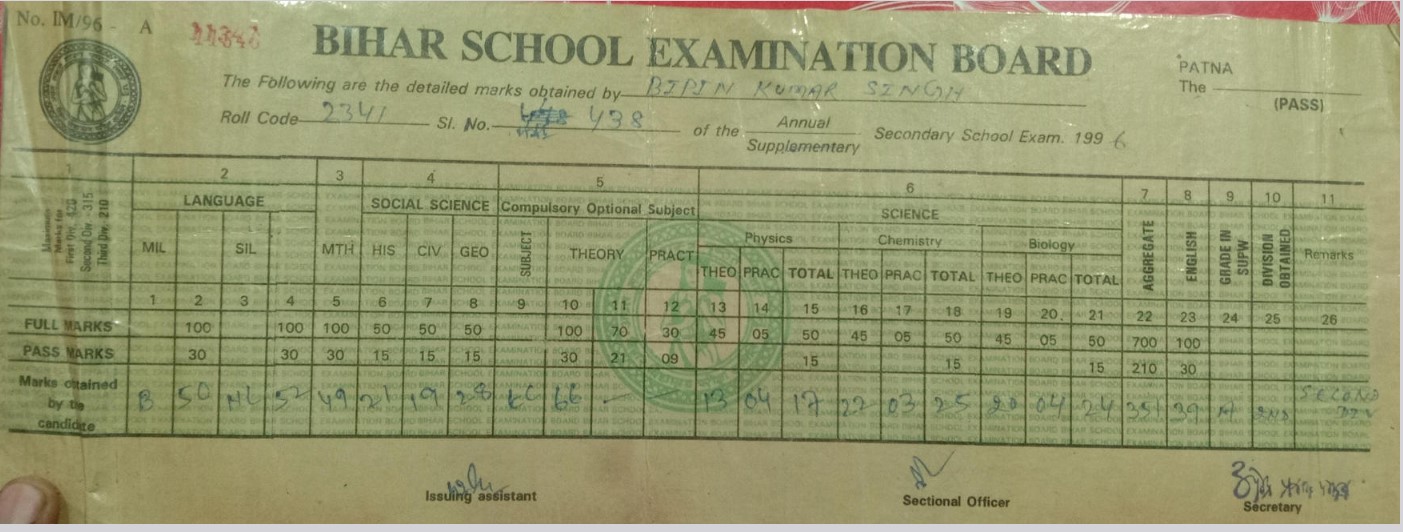 No. IM/96 - A 11346
BIHAR SCHOOL EXAMINATION BOARD
PATNA
The Following are the detailed marks obtained by BIPIN KUMAR SINGH
The (PASS)
Roll Code 2341 Sl. No. 438 of the Annual Supplementary Secondary School Exam. 1996
1 2 3 4 5 6 7 8 9 10 11
Marks for First Div. 420 Second Div. -315 Third Div. 210
LANGUAGE SOCIAL SCIENCE Compulsory Optional Subject SCIENCE
MIL SIL MTH HIS CIV GEO SUBJECT THEORY PRACT Physics Chemistry Biology AGGREGATE ENGLISH GRADE IN SUPW DIVISION OBTAINED Remarks
THEO PRAC TOTAL THEO PRAC TOTAL THEO PRAC TOTAL
1 2 3 4 5 6 7 8 9 10 11 12 13 14 15 16 17 18 19 20. 21 22 23 24 25 26
FULL MARKS 100 100 100 50 50 50 100 70 30 45 05 50 45 05 50 45 05 50 700 100
PASS MARKS 30 30 30 15 15 15 30 21 09 15 15 15 210 30
Marks obtained by the candidate B 50 NL 52 49 21 19 28 66 — — 13 04 17 22 03 25 20 04 24 351 39 A 2ND SECOND DIV
Issuing assistant
Sectional Officer
Secretary